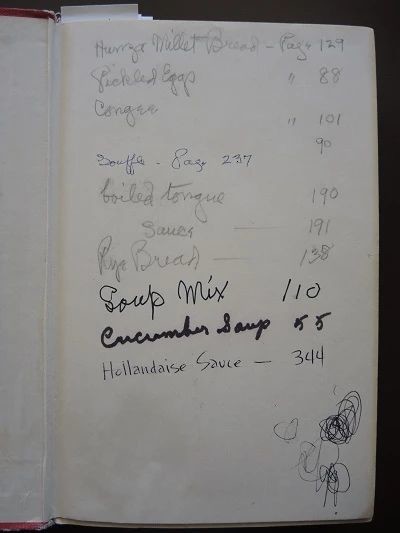 Hunza Millet Bread - Page 129
Pickled Eggs " 88
Congee " 101
90
Souffle - Page 237
boiled tongue 190
Sauce — 191
Rye Bread — 138
Soup Mix 110
Cucumber Soup 55
Hollandaise Sauce — 344